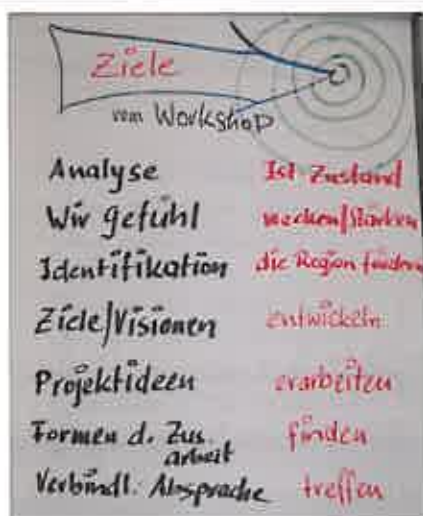 Ziele
vom Workshop
Analyse Ist Zustand
Wir gefühl wecken/stärken
Identifikation die Region fördern
Ziele/Visionen entwickeln
Projektideen erarbeiten
Formen d. Zus. finden
arbeit
Verbindl. Absprache treffen